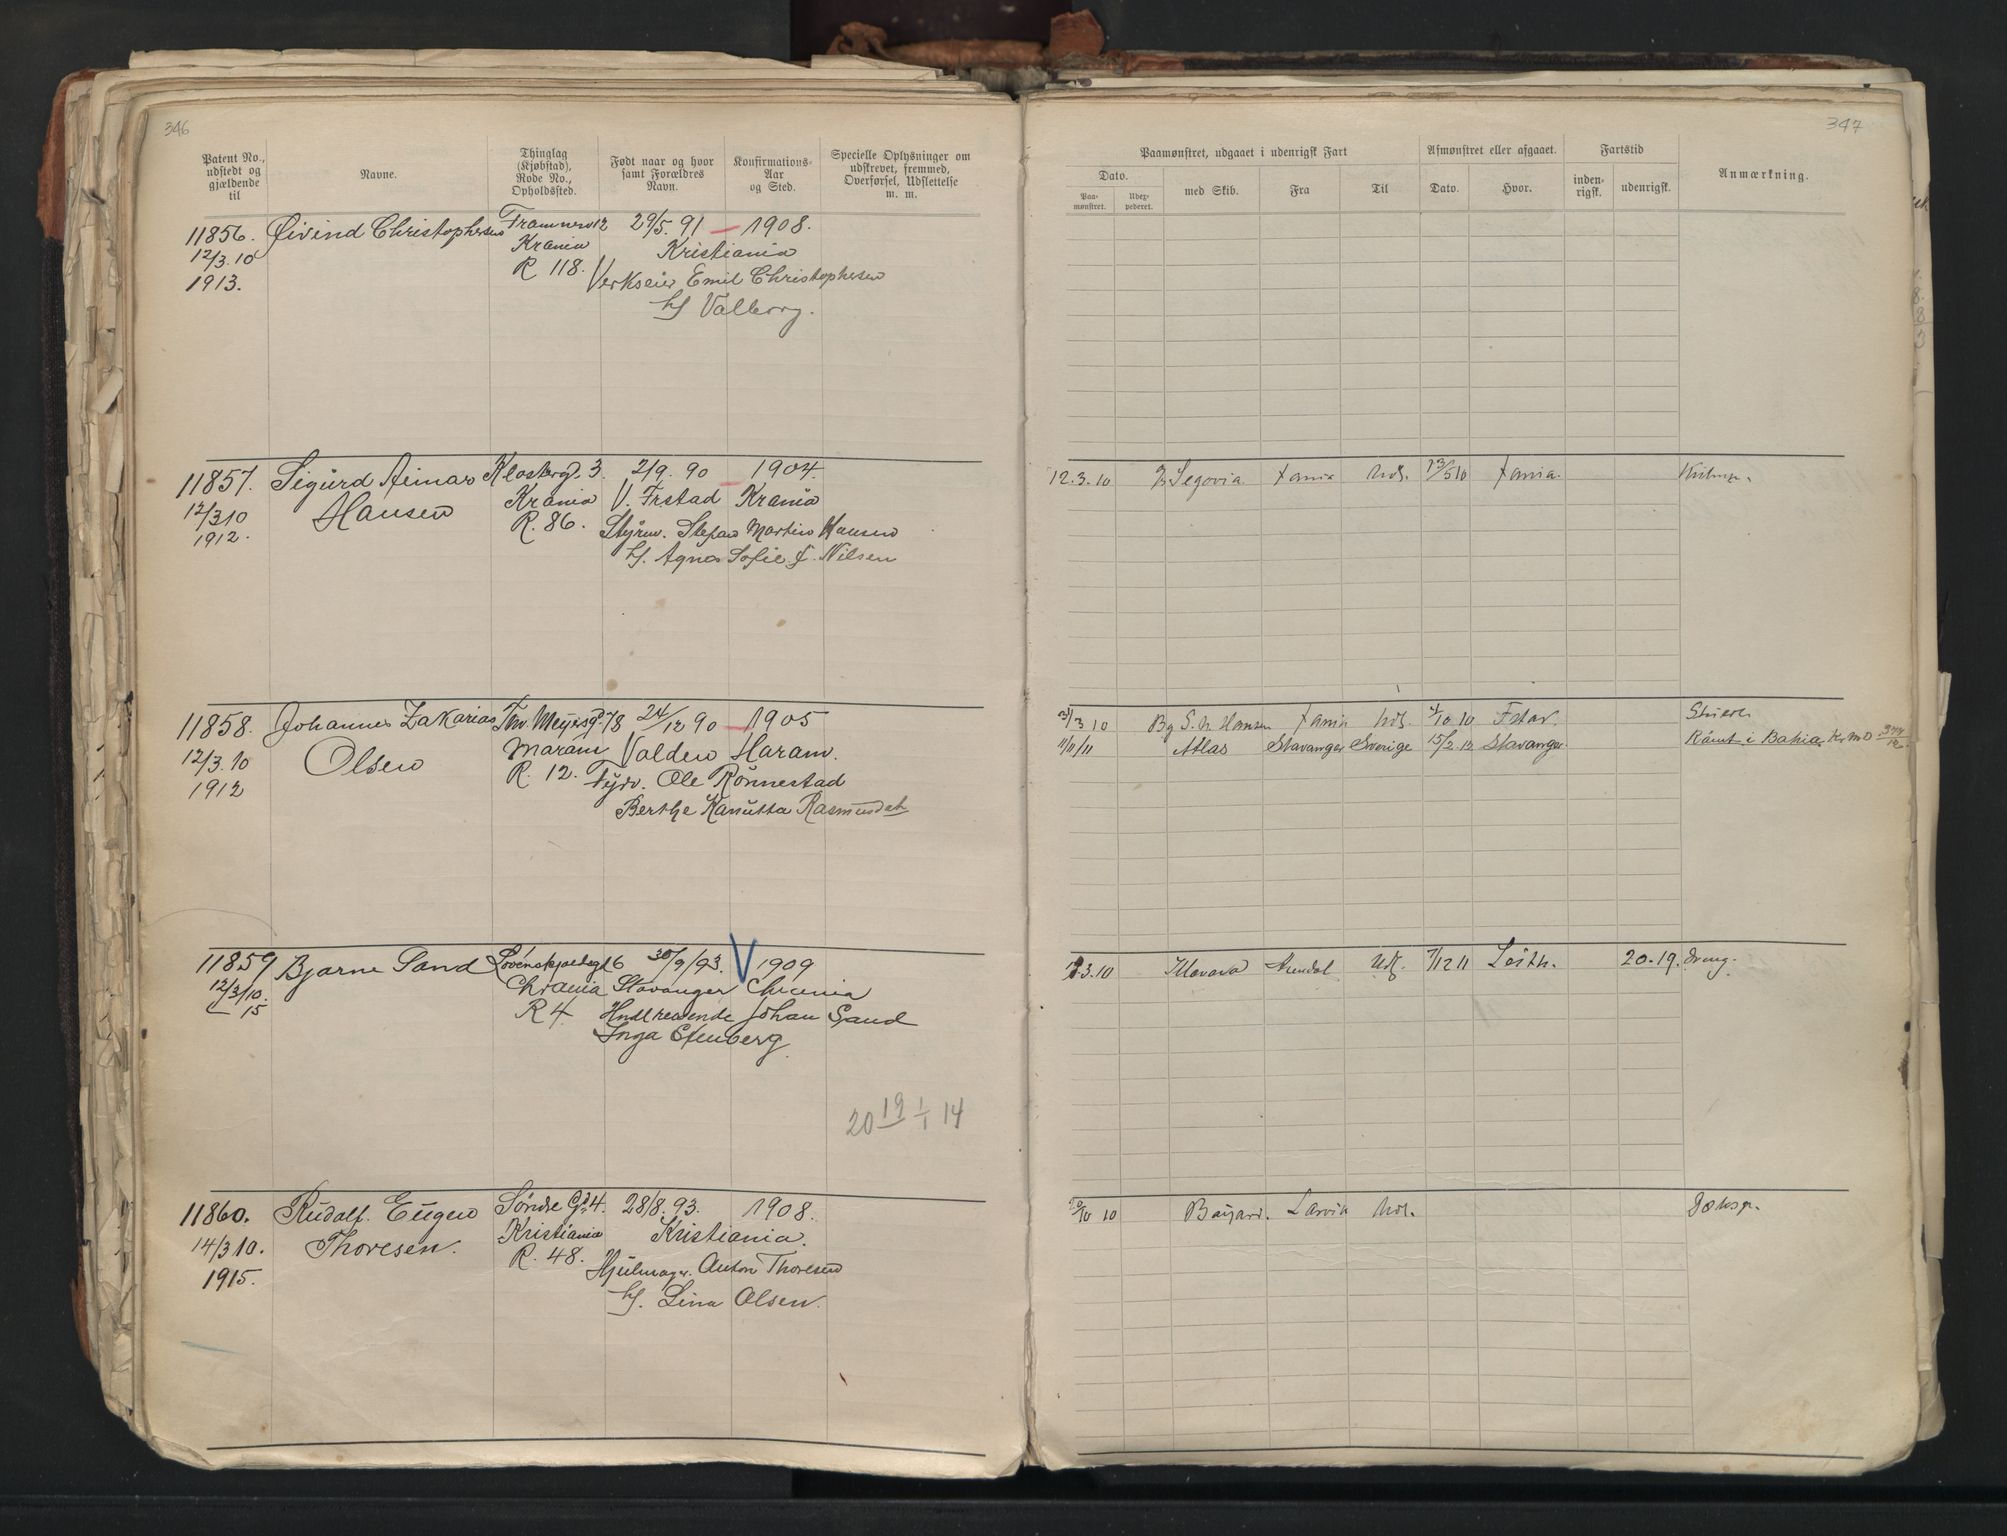 346
Patent No., udstedt og gjældende til
Navne.
Thinglag (Kjøbstad), Rode No., Opholdssted.
Født naar og hvor samt Forældres Navn.
Konfirmations-Aar og Sted.
Specielle Oplysninger om udskrevet, fremmed, Overførsel, Udslettelse m. m.
11856. Øivind Christophersen 29/5. 91 – 1908.
12/3. 10 Krania Kristiania
1913. R 118. Verkseier Emil Christophersen
Valborg.
11857. Sigurd Reimar Klosterg. 3 2/9. 90 1904.
12/3 10 Hansen Krania V. Frstad Krania
1912. R. 86. Styrm. Stefan Martin Hansen
Agnes Sofie f. Nilsen
11858. Johannes Zakarias Thv. Meyersg. 78 24/12 90 – 1905
12/3. 10 Olsen Haram Valden Haram.
1912 R. 12. Ole Rönnestad
Berthe Kanutta Rasmusdat
11859 Bjarne Sand Lövenskjoldsgt 6 30/9/93. V 1909
12/3/10. Chrania Stavanger Chrania
15 R 4 Hndlreisende Johan Sand
Inga Stenberg
20 19 1/1 14
11860. Rudolf Eugen Söndre Gd. 4. 28/8. 93. 1908.
14/3 10. Thoresen. Kristiania Kristiania.
1915. R. 48. Hjulmager Anton Thoresen
Lina Olsen.
347
Paamønstret, udgaaet i udenrigsk Fart
Afmønstret eller afgaaet.
Fartstid
Anmærkning.
Dato.
Paa-mønstret.
Udex-pederet.
med Skib.
Fra
Til
Dato.
Hvor.
inden-rigsk.
udenrigsk.
12. 3. 10 Segovia Xania Uds. 13/5 10 Xania.
3 10 Bg S. N. Hansen Xania Uds. 10 10 Fstav.
11/11/11 Atlas Stavanger Sverige 15/2 12 Stavanger. Römt i Bahia
12. 3. 10 Arendal Uds. 7/12 11 Leith. 20-19. Dreng.
10 10 Bayard. Larvik Uds. Dæksgt.